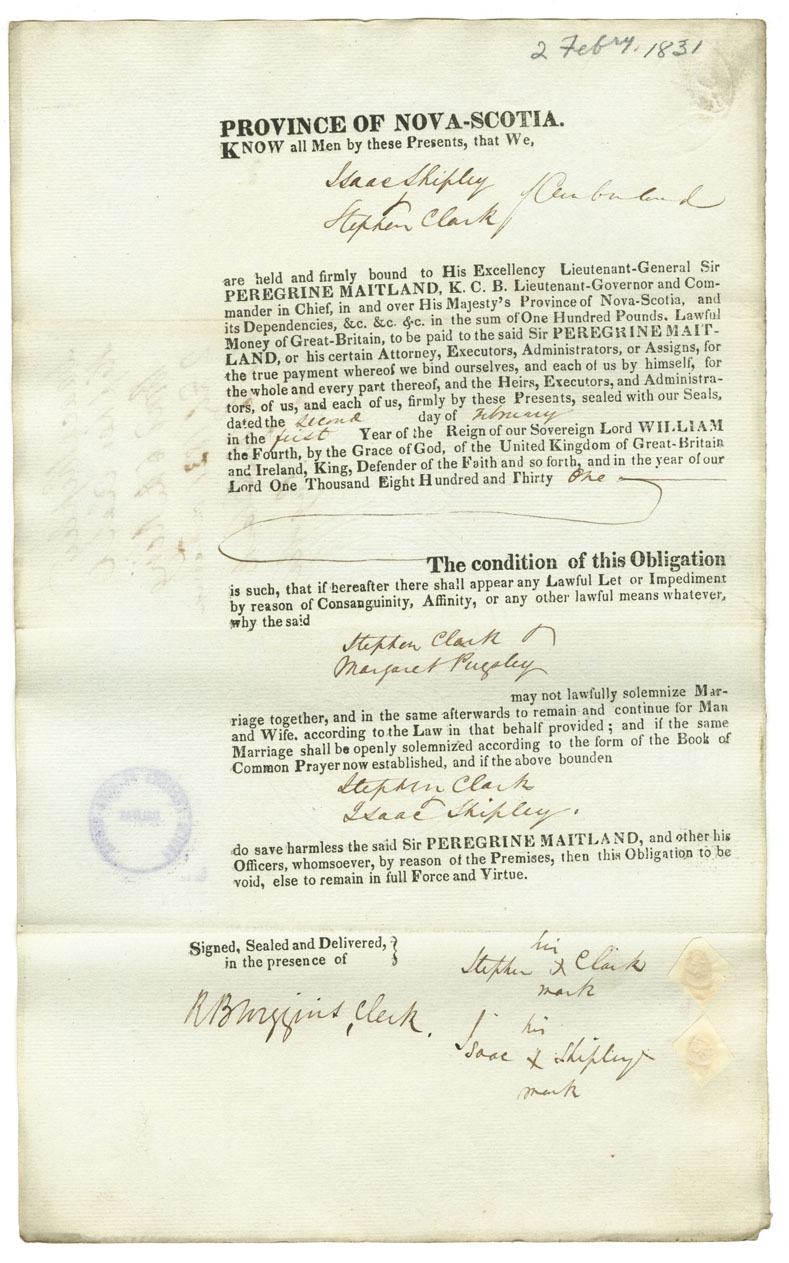 2 Febry. 1831
PROVINCE OF NOVA-SCOTIA.
KNOW all Men by these Presents, that We,
Isaac Shipley
Stephen Clark
Cumberland
are held and firmly bound to His Excellency Lieutenant-General Sir
PEREGRINE MAITLAND, K. C. B. Lieutenant-Governor and Com-
mander in Chief, in and over His Majesty's Province of Nova-Scotia, and
its Dependencies, &c. &c. &c. in the sum of One Hundred Pounds. Lawful
Money of Great-Britain, to be paid to the said Sir PEREGRINE MAIT-
LAND, or his certain Attorney, Executors, Administrators, or Assigns, for
the true payment whereof we bind ourselves, and each of us by himself, for
the whole and every part thereof, and the Heirs, Executors, and Administra-
tors, of us, and each of us, firmly by these Presents, sealed with our Seals,
dated the second day of February
in the first Year of the Reign of our Sovereign Lord WILLIAM
the Fourth, by the Grace of God, of the United Kingdom of Great-Britain
and Ireland, King, Defender of the Faith and so forth, and in the year of our
Lord One Thousand Eight Hundred and Thirty One
The condition of this Obligation
is such, that if hereafter there shall appear any Lawful Let or Impediment
by reason of Consanguinity, Affinity, or any other lawful means whatever,
why the said
Stephen Clark
Margaret Pugsley
may not lawfully solemnize Mar-
riage together, and in the same afterwards to remain and continue for Man
and Wife. according to the Law in that behalf provided; and if the same
Marriage shall be openly solemnized according to the form of the Book of
Common Prayer now established, and if the above bounden
Stephen Clark
Isaac Shipley.
do save harmless the said Sir PEREGRINE MAITLAND, and other his
Officers, whomsoever, by reason of the Premises, then this Obligation to be
void, else to remain in full Force and Virtue.
Signed, Sealed and Delivered, }
in the presence of
his
Stephen X Clark
mark
R B Wiggins, Clerk.
his
Isaac X Shipley
mark